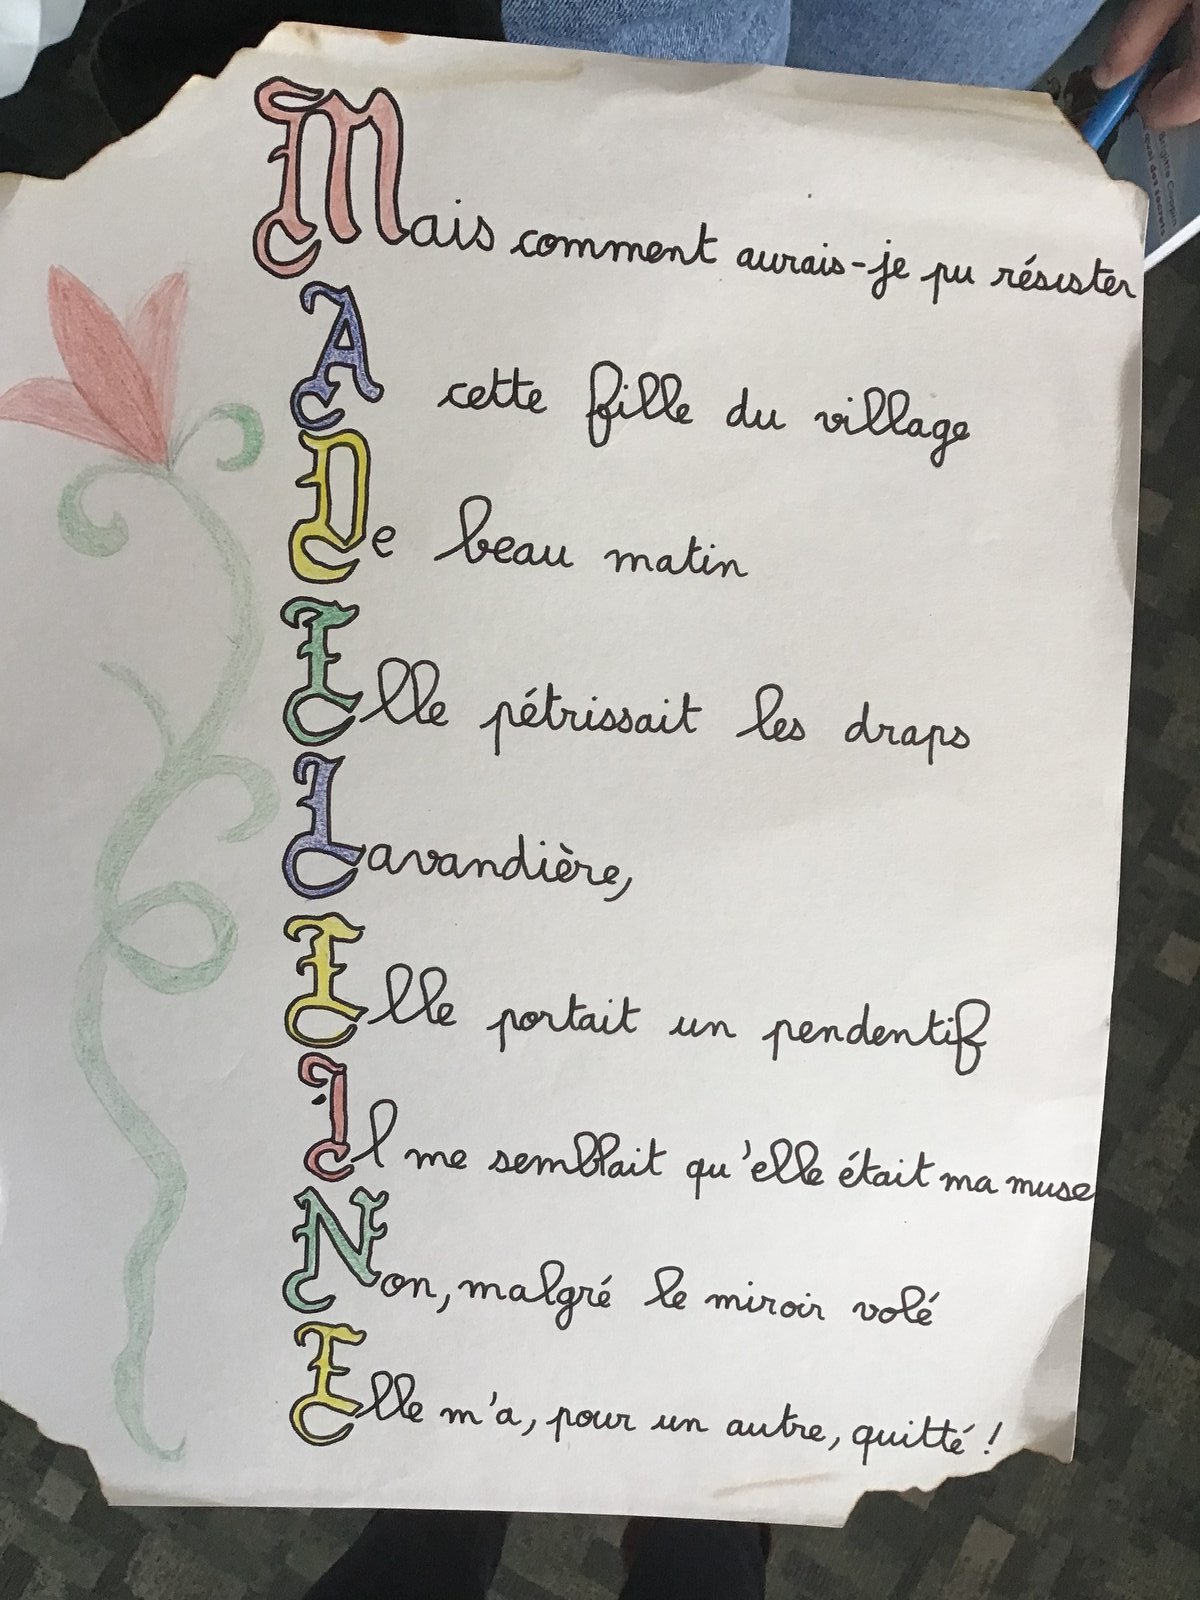 Mais comment aurais-je pu résister
A cette fille du village
De beau matin
Elle pétrissait les draps
Lavandière,
Elle portait un pendentif
Il me semblait qu'elle était ma muse
Non, malgré le miroir volé
Elle m'a, pour un autre, quitté !
Brigitte Coppin
quai des secrets